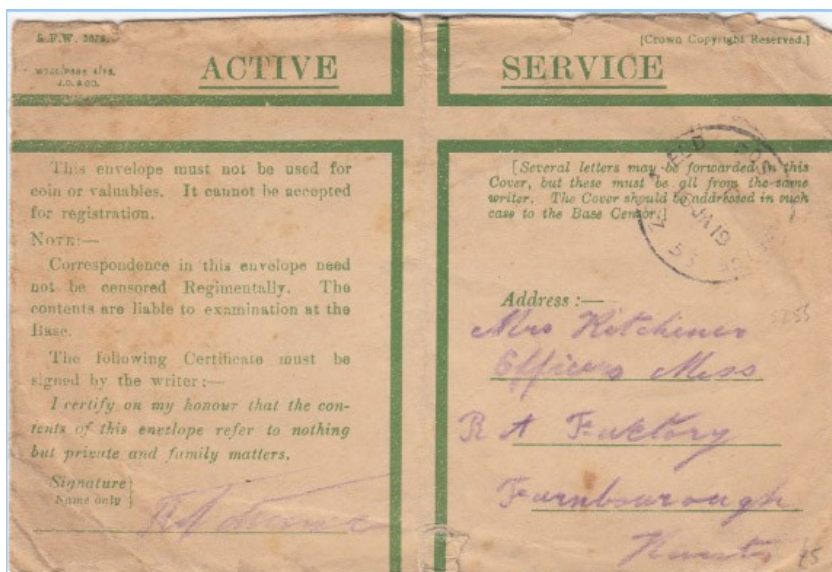 [Crown Copyright Reserved.]
J.D.&CO.
ACTIVE SERVICE
This envelope must not be used for
coin or valuables. It cannot be accepted
for registration.
NOTE:—
Correspondence in this envelope need
not be censored Regimentally. The
contents are liable to examination at the
Base.
The following Certificate must be
signed by the writer:—
I certify on my honour that the con-
tents of this envelope refer to nothing
but private and family matters.
Signature }
Name only
[Several letters may be forwarded in this
Cover, but these must be all from the same
writer. The Cover should be addressed in such
case to the Base Censor.]
JA 19
Address :—
Mrs Kitchener
Officers Mess
R A Factory
Farnbourough
Hants